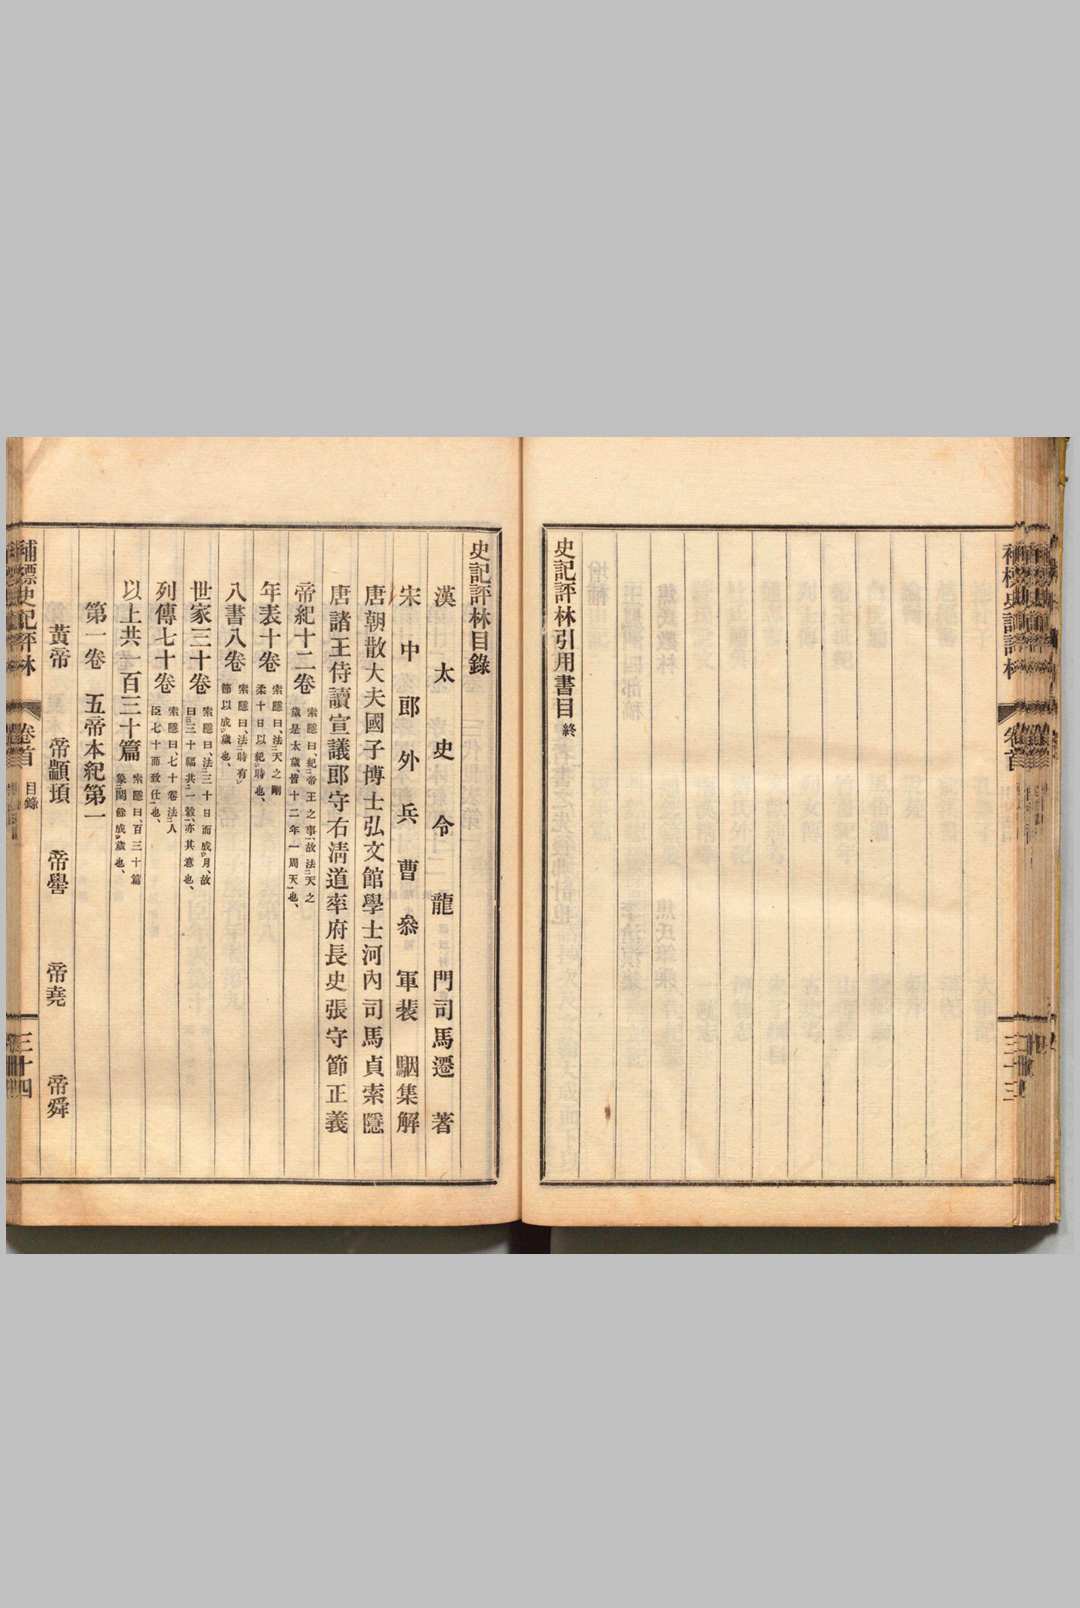 史記評林引用書目終
三十三
史記評林目錄
漢太史令龍門司馬遷著
宋中郎外兵曹叅軍裴駰集解
唐朝散大夫國子博士弘文館學士河內司馬貞索隱
唐諸王侍讀宣議郎守右淸道率府長史張守節正義
帝紀十二卷
索隱曰、紀帝王之事、故法天之
歲是太歲、皆十二年一周天也、
年表十卷
索隱曰、法天之剛
柔十日以紀時也、
八書八卷
索隱曰、法時有
節以成歲也、
世家三十卷
索隱曰、法三十日而成月、故
曰三十輻共一轂、亦其意也、
列傳七十卷
索隱曰、七十卷法人
臣七十而致仕也、
以上共一百三十篇
索隱曰、百三十篇
象閏餘成歲也、
第一卷 五帝本紀第一
黃帝 帝顓頊 帝嚳 帝堯 帝舜
補標史記評林 卷首 目錄 三十四